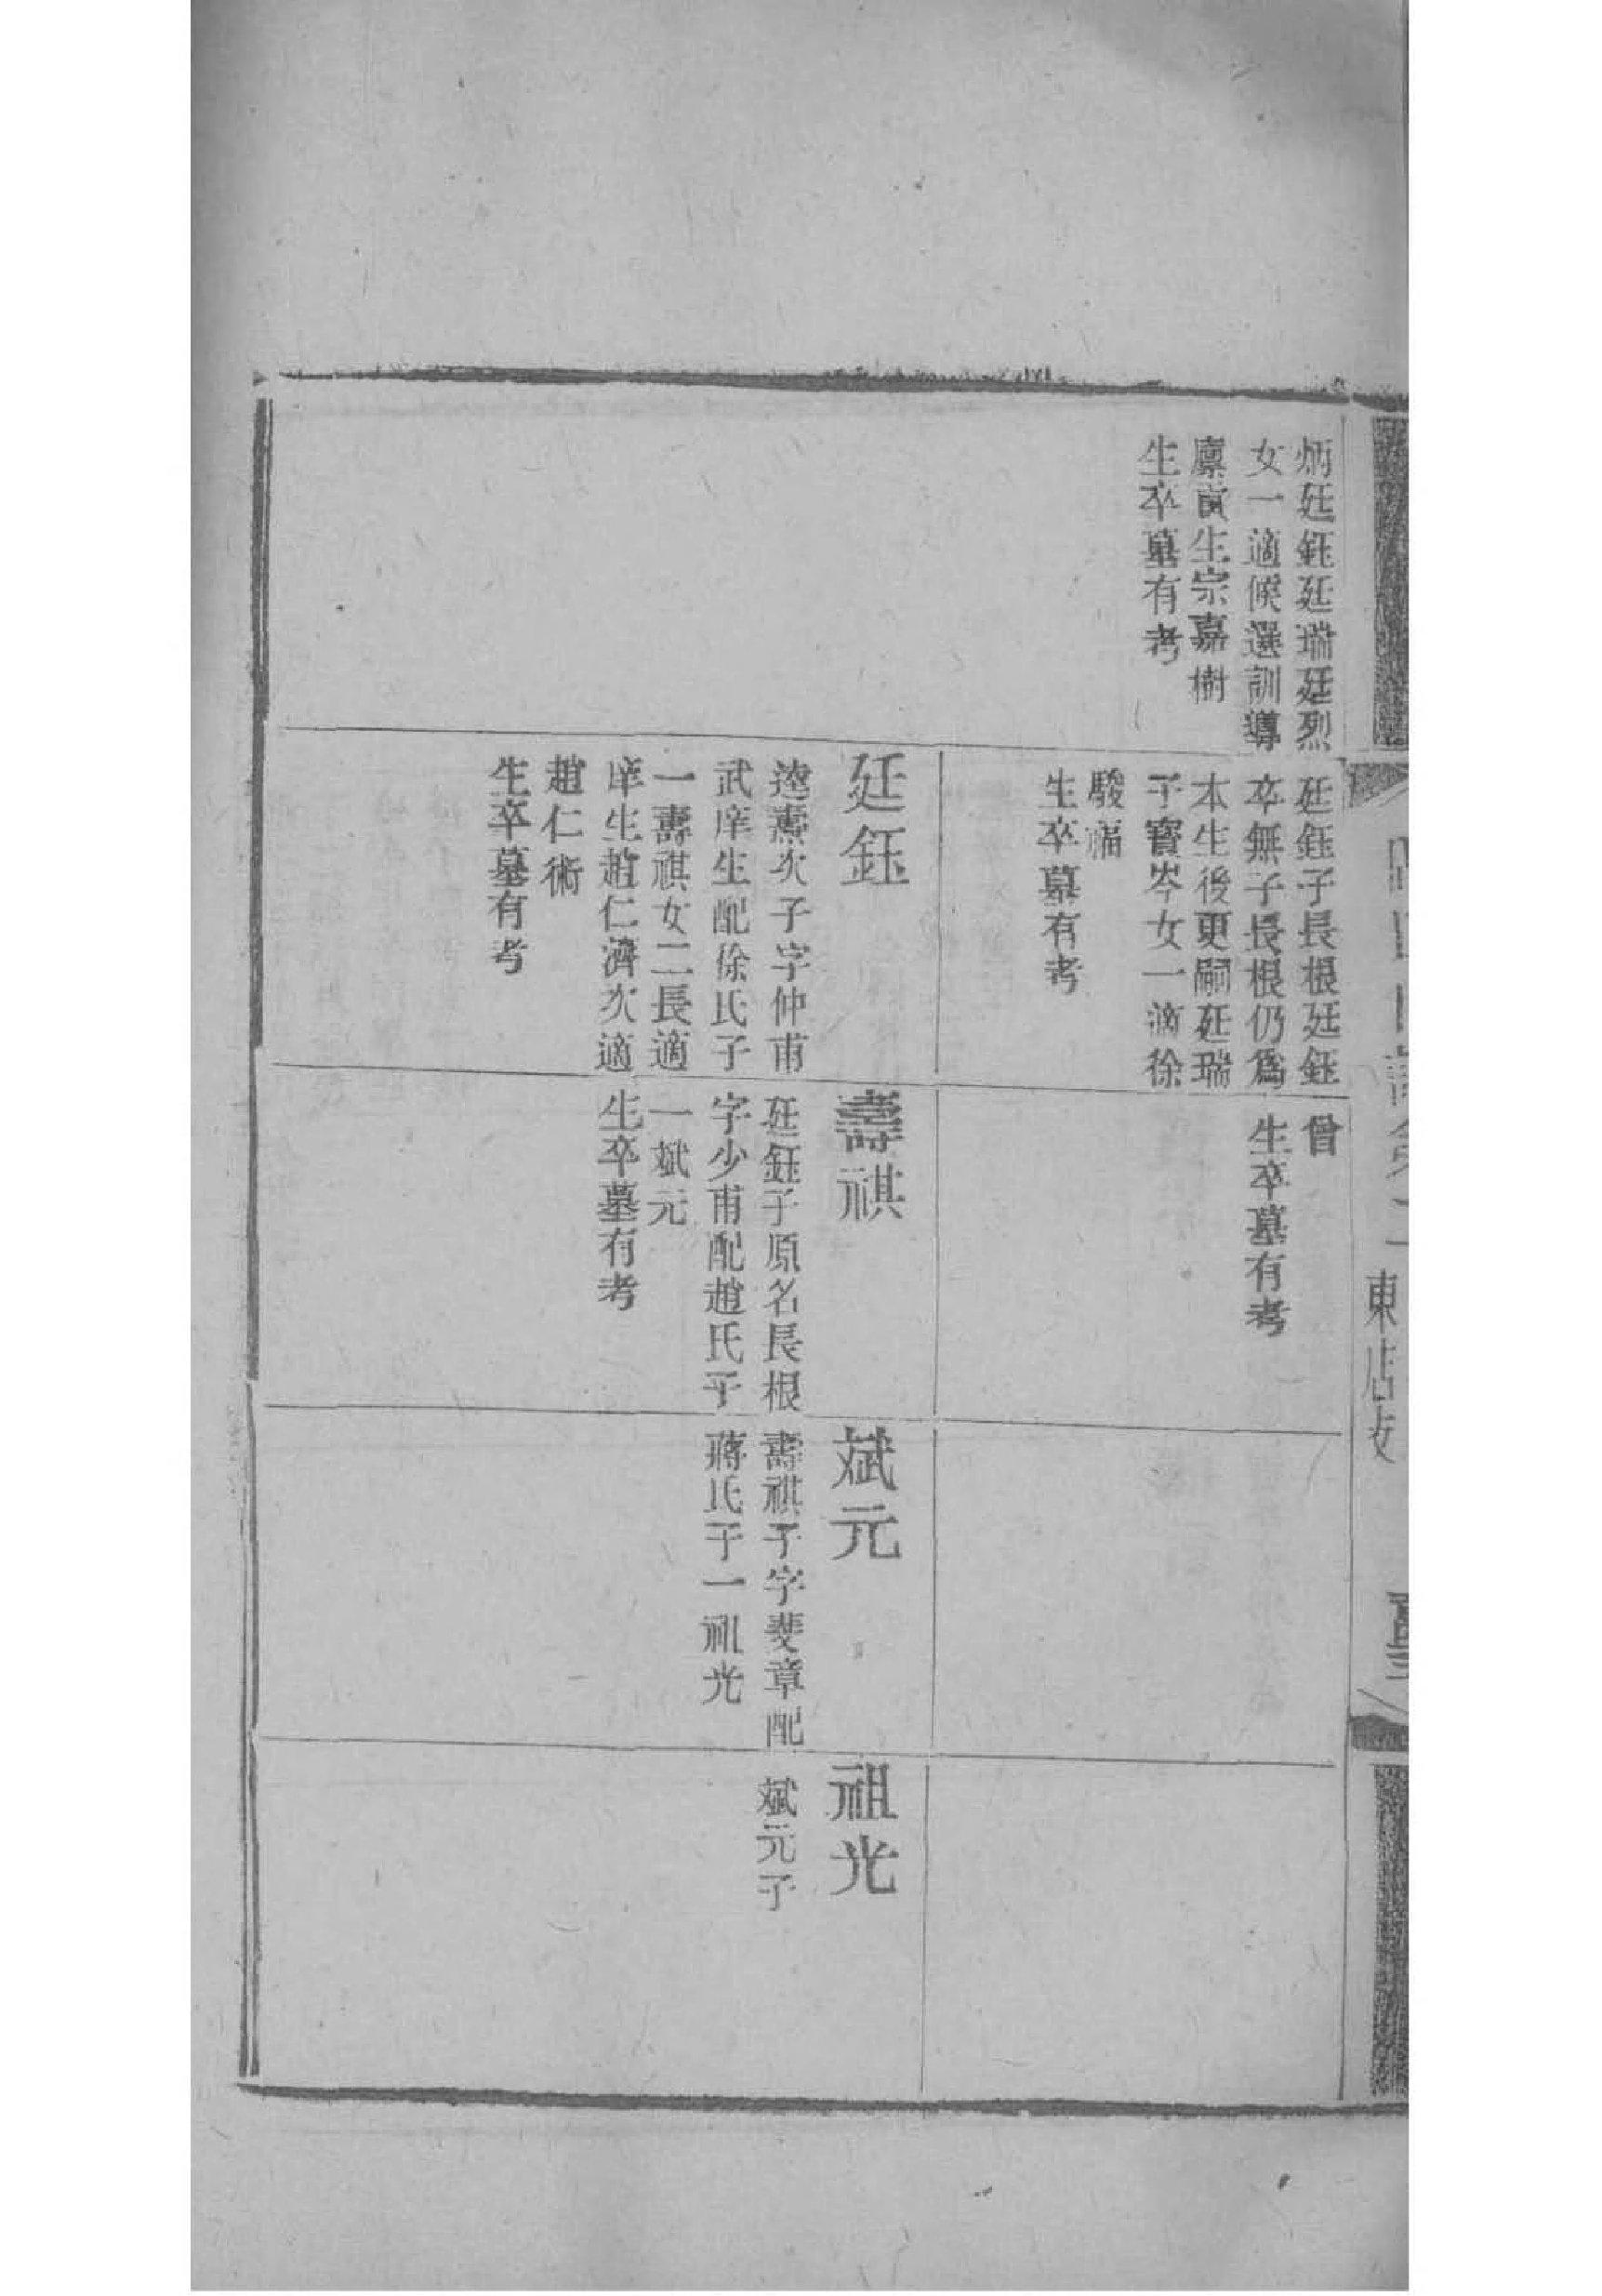 炳廷鈺廷瑞廷烈
女一適候選訓導
廩貢生宗嘉樹
生卒墓有考
廷鈺子長根廷鈺
卒無子長根仍為
本生後更嗣廷瑞
子寶岑女一適徐
駿福
生卒墓有考
曾
生卒墓有考
廷鈺
達燾次子字仲甫
武庠生配徐氏子
一壽祺女二長適
庠生趙仁濟次適
趙仁術
生卒墓有考
壽祺
廷鈺子原名長根
字少甫配趙氏子
一斌元
生卒墓有考
斌元
壽祺子字斐章配
蔣氏子一祖光
祖光
斌元子
東店支